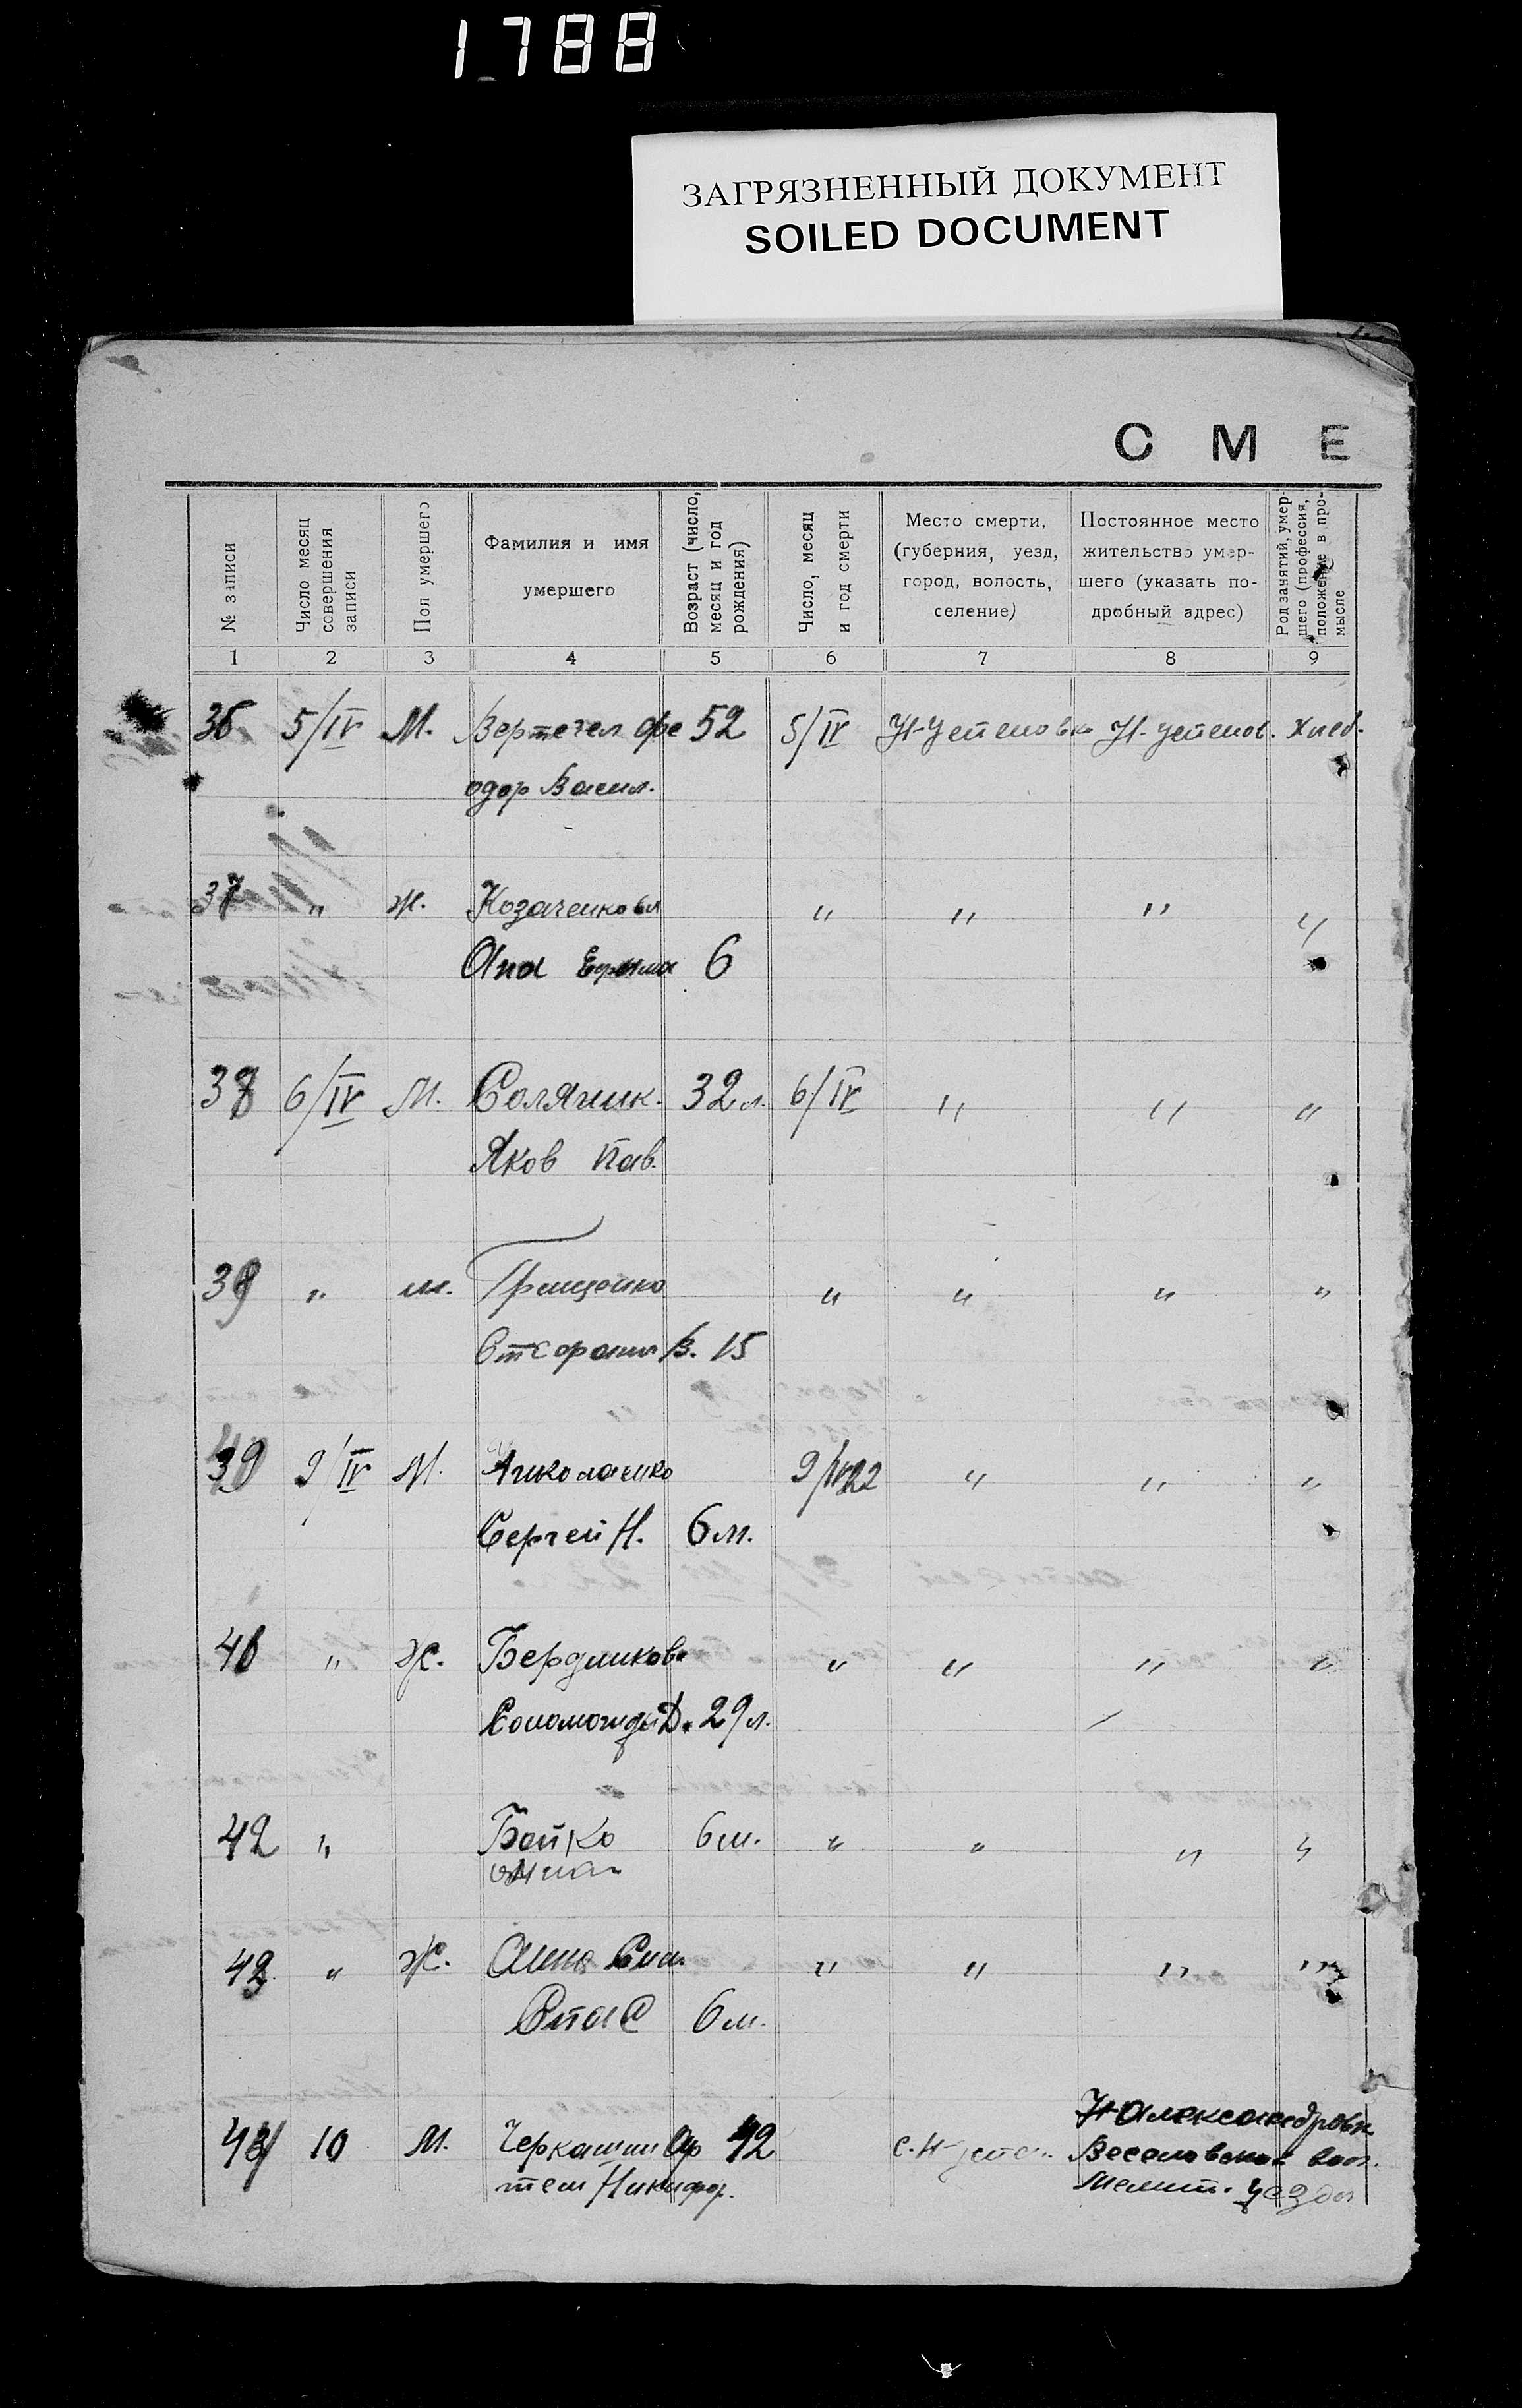 1788
ЗАГРЯЗНЕННЫЙ ДОКУМЕНТ
SOILED DOCUMENT
С М Е
№ записи
Число месяц совершения записи
Пол умершего
Фамилия и имя умершего
Возраст (число, месяц и год рождения)
Число, месяц и год смерти
Место смерти, (губерния, уезд, город, волость, селение)
Постоянное место жительство умершего (указать подробный адрес)
Род занятий, умершего (профессия, положение в промысле
1 2 3 4 5 6 7 8 9
36 5/IV М. Вертегел Фе 52 5/IV Н-Успеновка Н-успенов. Хлеб.
одор Васил.
37 " ж. Козаченкова " " " "
Ана 6
38 6/IV М. Соляник. 32 л. 6/IV " " "
Яков Пав.
39 " м. Грищенко " " " "
В. 15
9/IV М. Николаенко 9/IV 22 " " "
Сергей Н. 6 м.
" Ж. Бердникова " " " "
Д. 29 л.
42 " Бойко 6 м. " " " "
" Ж. Анна " " " "
Спас 6 м.
10 М. Черкашин Ар 42 с. Н-успен. Н Александровк.
тем Никифор. Веселовской вол.
Мелит. уезда